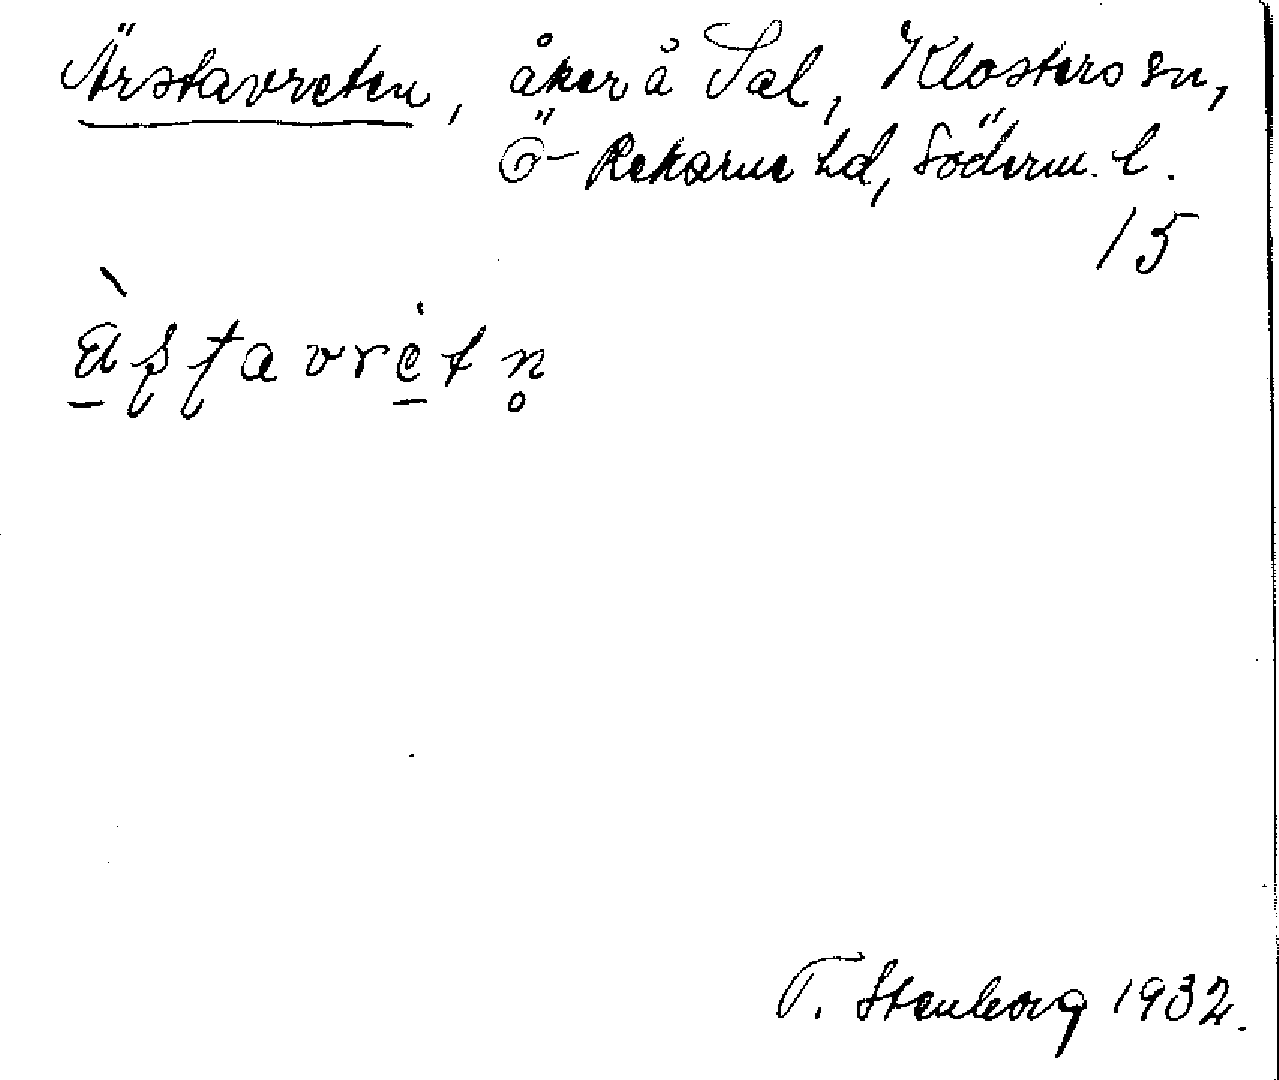 Ärstavreten, åker å Sal, Klosters sn,
Ö-Rekarne hd, Söderm. l.
15
T. Stenborg 1932.